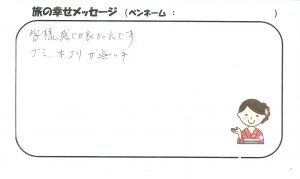 旅の幸せメッセージ （ペンネーム： ）
皆様感じが良かったです。
ゴミ、ホコリ